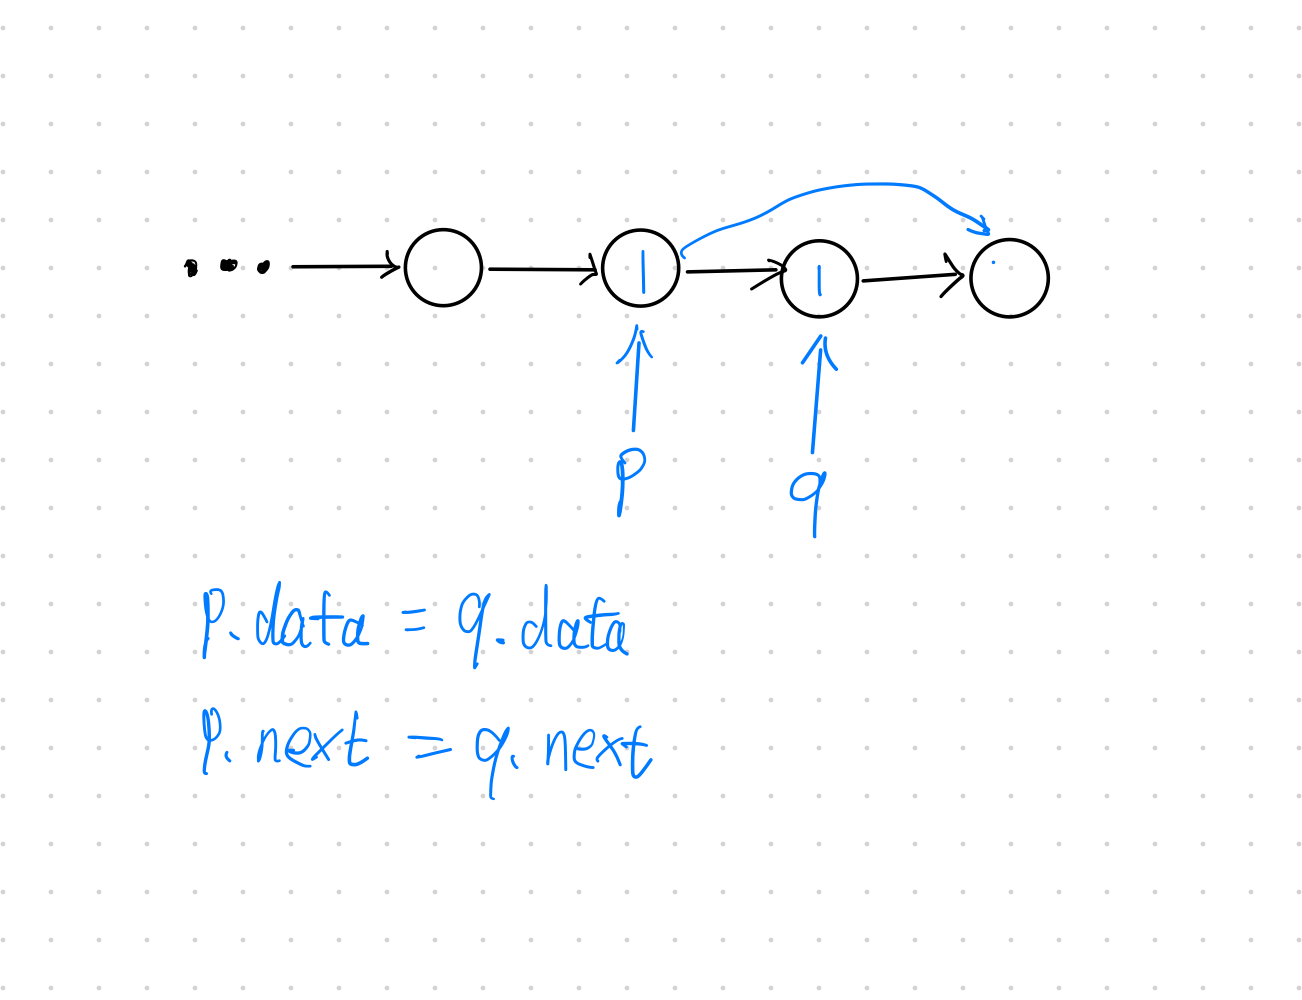 1 1
p q
p.data = q.data
p.next = q.next